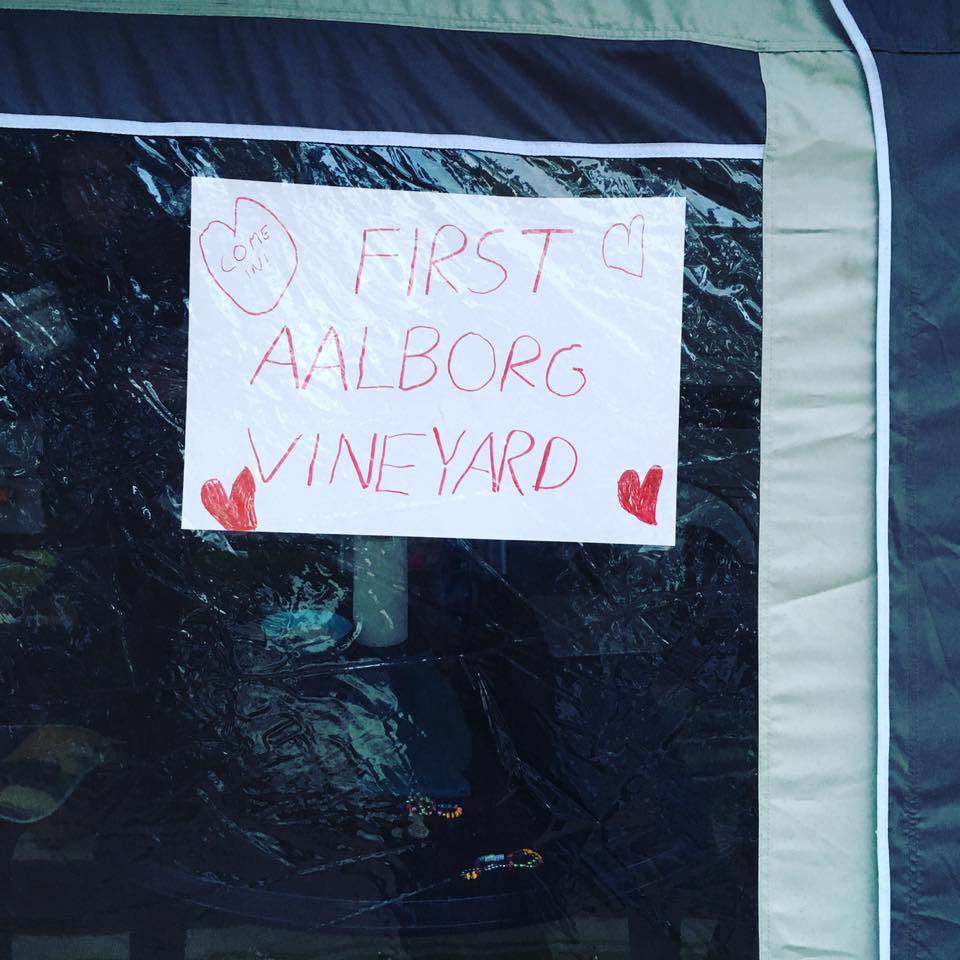 COME
IN!
FIRST
AALBORG
VINEYARD